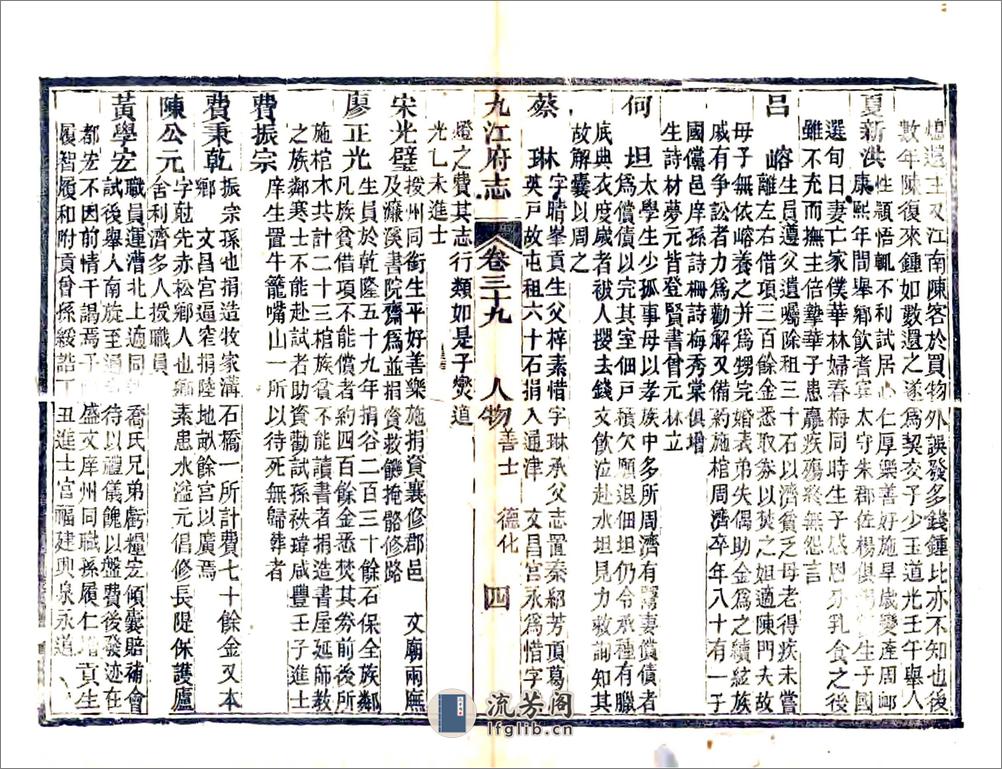 煌還主又江南陳客於買物外誤發多錢鍾比亦不知也後
數年陳復來鍾如數還之遂爲契亥子少玉道光壬午舉人
夏新洪性穎悟輒不利試居心仁厚樂善好施早歲變產周
康熙年間舉鄉飲耆賓太守朱郡佐楊俱 生子國
選旬日妻亡家僕華林婦春梅同時生子感恩分乳食之後
雖不充而撫主倍摯華子患 疾殤終無怨言
呂嵱生員遵父遺囑除租三十石以濟貧乏母老得疾未嘗
離左右借項三百餘金悉取券以焚之姐適陳門夫故
母子無依嵱養之并爲甥完婚表弟失偶助金爲之續絃族
戚有爭訟者力爲勸解又備葯施棺周濟卒年八十有一子
國儻呂梅孫詩珊詩梅秀棠俱增
生詩材夢元皆登賢書曾元林立
何坦太學生少孤事母以孝族中多所周濟有鬻妻償債者
爲償債以完其室佃戶積欠願退佃坦仍令承種有臘
底典衣度歲者被人攫去錢文飲泣赴水坦見力救詢知其
故解囊以周之
蔡琳字晴峯貢生父梓素惜字琳承父志置秦鄒芳項葛
英戸故屯租六十石捐入通津 文昌宮永爲惜字
九江府志 卷三十九 人物 善士 德化 四
燈之費其志行類如是子爕道
光乙未進士
宋光璧按州同銜生平好善樂施捐資襄修郡邑 文廟兩廡
及濂溪書院齋爲並捐資救饑掩骼修路
廖正光生員於乾隆五十九年捐谷二百三十餘石保全族鄰
凡族貧借項不能償者約四百餘金悉焚其券前後所
施棺木共計二十三棺族貧不能讀書者捐造書屋延師教
之族鄰寒士不能赴試者助資勸試孫秩瑋咸豐壬子進士
費振宗庠生置牛籠嘴山一所以待死無歸葬者
費秉乾振宗孫也捐造牧家溝石橋一所計費七十餘金又本
鄉 文昌宮逼窄捐陸地畝餘宮以廣焉
陳公元字 先赤松鄉人也鄉素患水溢元倡修長隄保護廬
舍利濟多人授職員
黃學宏職員運漕北上適同 喬氏兄弟虧糧宏傾囊賠補會
試後舉人南旋至通 待以禮儀餽以盤費後發迹在
都宏不因前情干謁焉子 盛文庠州同職孫履仁增貢生
履智履和附貢曾孫毅誥丁丑進士官福建興泉永道
流芳阁
lfglib.cn